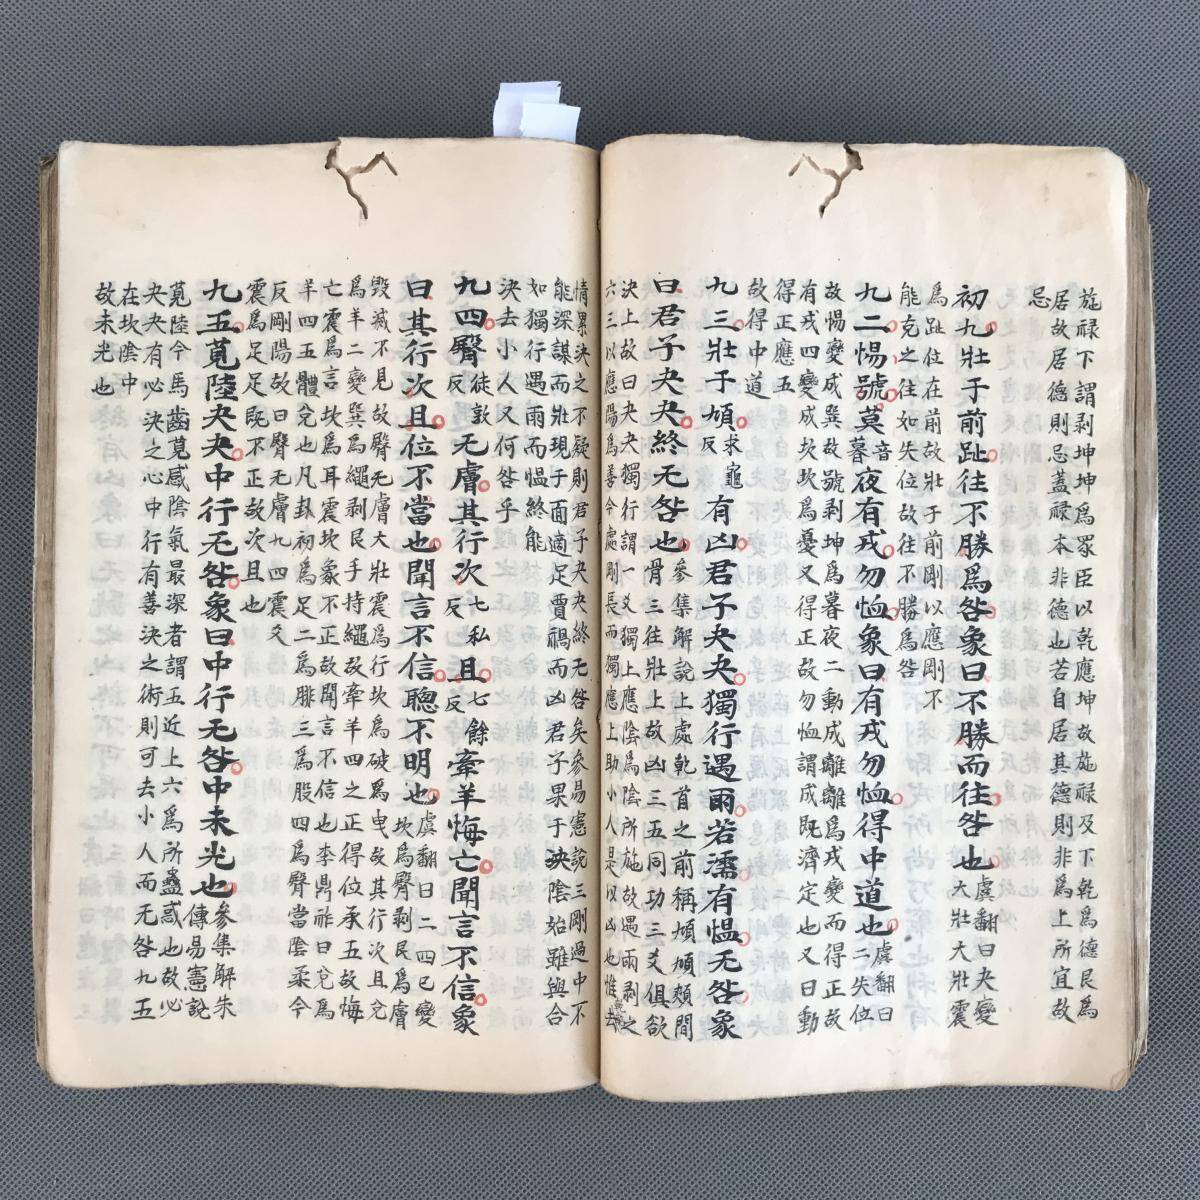 施祿下謂剥坤坤爲衆臣以乾應坤故施祿及下乾爲德艮爲
居故居德則忌蓋祿本非德也若自居其德則非爲上所宜故
忌
初九壯于前趾往不勝爲咎象曰不勝而往咎也虞翻曰夬變
大壯大壯震
爲趾位在前故壯于前剛以應剛不
能克之往如失位故往不勝爲咎
九二惕號莫音
暮夜有戎勿恤象曰有戎勿恤得中道也虞翻曰
二失位
故惕變成巽故號剥坤爲暮夜二動成離離爲戎變而得正故
有戎四變成坎坎爲憂又得正故勿恤謂成既濟定也又曰動
得正應五
故得中道
九三壯于頄求龜
反有凶君子夬夬獨行遇雨若濡有愠无咎象
曰君子夬夬終无咎也參集解說上處乾首之前稱頄頄頰間
骨三往壯上故凶三五同功三爻俱欲
決上故曰夬夬獨行謂一爻獨上應陰爲陰所施故遇雨剥之
六三以應陽爲善今處剛長而獨應上助小人是以凶也惟去
情累決之不疑則君子夬夬終无咎矣參易憲說三剛過中不
能深謀而壯現于面適足賈禍而凶君子果于決陰始雖與合
如獨行遇雨而愠終能
決去小人又何咎乎
九四臀徒敦
反无膚其行次七私
反且七餘
反牽羊悔亡聞言不信象
曰其行次且位不當也聞言不信聰不明也虞翻曰二四已變
坎爲臀剥艮爲膚
毀滅不見故臀无膚大壯震爲行坎爲破爲曳故其行次且兌
爲羊二變巽爲繩剥艮手持繩故牽羊四之正得位承五故悔
亡震爲言坎爲耳震坎象不正故聞言不信也李鼎祚曰兌爲
羊四五體兌也凡卦初爲足二爲腓三爲股四爲臀當陰柔今
反剛陽故曰臀无膚九四震爻
震爲足足既不正故次且也
九五莧陸夬夬中行无咎象曰中行无咎中未光也參集解朱
傳易憲說
莧陸今馬齒莧感陰氣最深者謂五近上六爲所蠱惑也故必
夬夬有必決之心中行有善決之術則可去小人而无咎九五
在坎陰中
故未光也